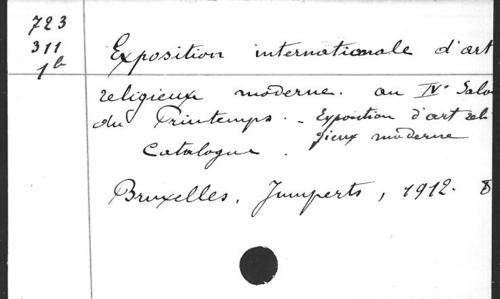 723
311
1b
Exposition internationale d'art
religieux moderne. au IVe Salo
du Printemps. - Exposition d'art reli
gieux moderne
Catalogue.
Bruxelles, Jumperts, 1912. 8